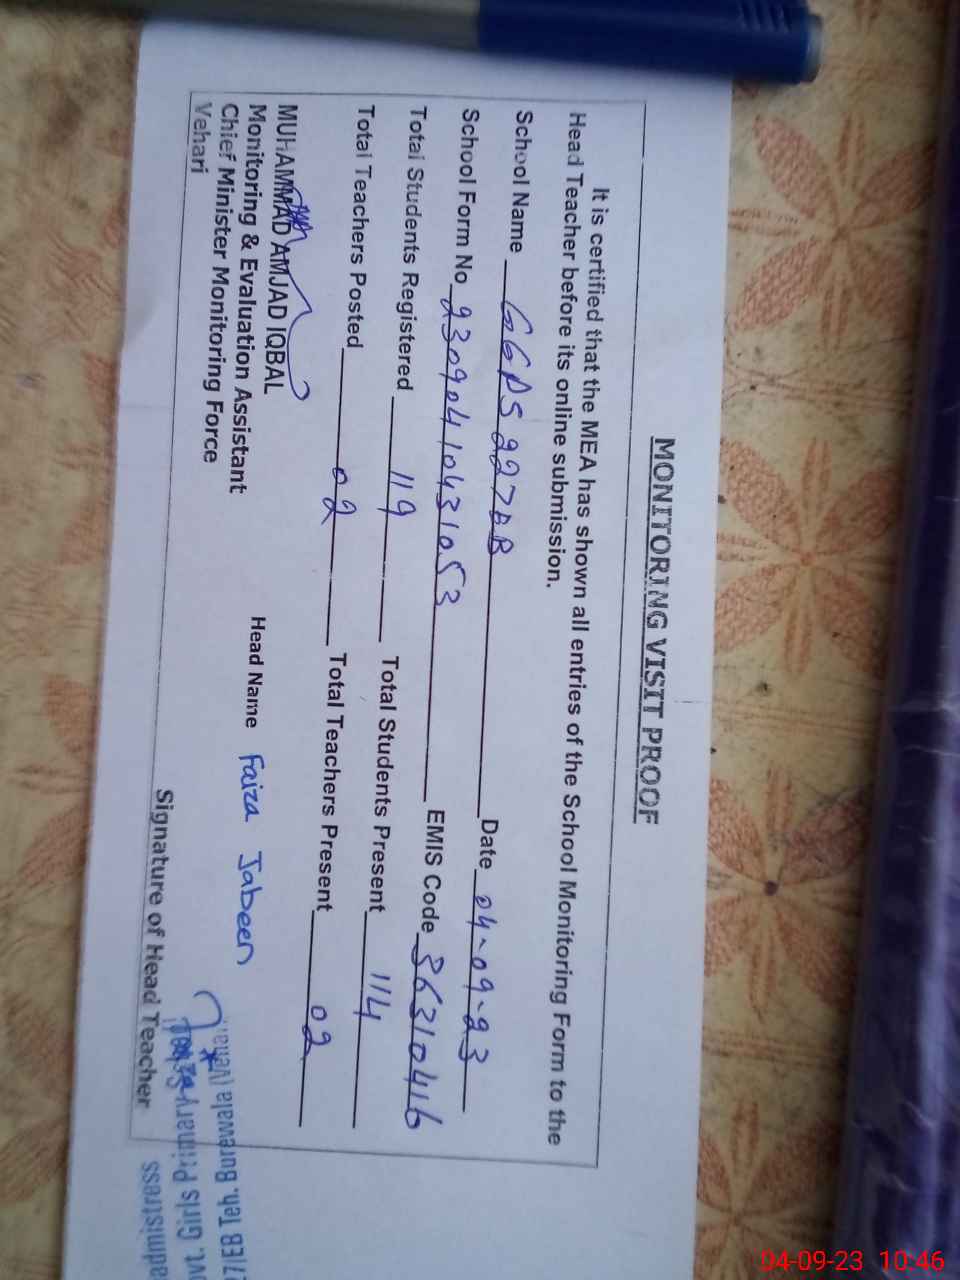 MONITORING VISIT PROOF
It is certified that the MEA has shown all entries of the School Monitoring Form to the
Head Teacher before its online submission.
School Name GGPS 227EB Date 04-09-23
School Form No 23090410431053 EMIS Code 36310416
Total Students Registered 119 Total Students Present 114
Total Teachers Posted 02 Total Teachers Present 02
MUHAMMAD AMJAD IQBAL
Monitoring & Evaluation Assistant Head Name Faiza Jabeen
Chief Minister Monitoring Force
Vehari
Signature of Head Teacher
Girls Primary
7/EB Teh. Burewala
04-09-23 10:46